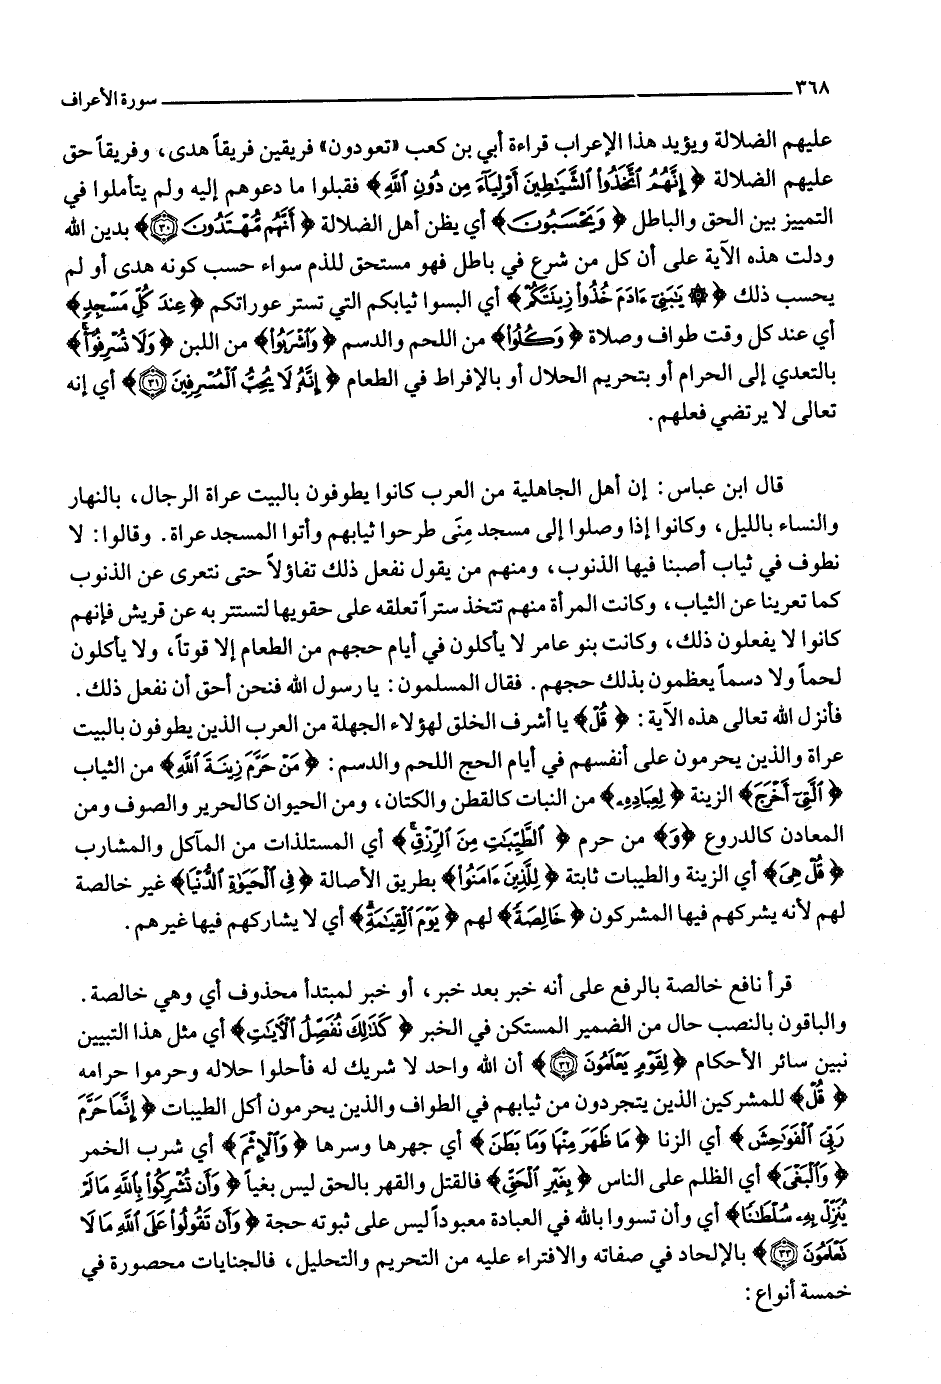 ٣٦٨ سورة الأعراف
عليهم الضلالة ويؤيد هذا الإعراب قراءة أبي بن كعب «تعودون» فريقين فريقاً هدى، وفريقاً حق
عليهم الضلالة ﴿ إِنَّهُمُ ٱتَّخَذُواْ ٱلشَّيَٰطِينَ أَوۡلِيَآءَ مِن دُونِ ٱللَّهِ﴾ فقبلوا ما دعوهم إليه ولم يتأملوا في
التمييز بين الحق والباطل ﴿ وَيَحۡسَبُونَ﴾ أي يظن أهل الضلالة ﴿ أَنَّهُم مُّهۡتَدُونَ ٣٠﴾ بدين الله
ودلت هذه الآية على أن كل من شرع في باطل فهو مستحق للذم سواء حسب كونه هدى أو لم
يحسب ذلك ﴿ ۞ يَٰبَنِيٓ ءَادَمَ خُذُواْ زِينَتَكُمۡ﴾ أي البسوا ثيابكم التي تستر عوراتكم ﴿عِندَ كُلِّ مَسۡجِدٖ﴾
أي عند كل وقت طواف وصلاة ﴿ وَكُلُواْ﴾ من اللحم والدسم ﴿وَٱشۡرَبُواْ﴾ من اللبن ﴿وَلَا تُسۡرِفُوٓاْۚ﴾
بالتعدي إلى الحرام أو بتحريم الحلال أو بالإفراط في الطعام ﴿ إِنَّهُۥ لَا يُحِبُّ ٱلۡمُسۡرِفِينَ ٣١﴾ أي إنه
تعالى لا يرتضي فعلهم.
قال ابن عباس: إن أهل الجاهلية من العرب كانوا يطوفون بالبيت عراة الرجال، بالنهار
والنساء بالليل، وكانوا إذا وصلوا إلى مسجد مِنَى طرحوا ثيابهم وأتوا المسجد عراة. وقالوا: لا
نطوف في ثياب أصبنا فيها الذنوب، ومنهم من يقول نفعل ذلك تفاؤلاً حتى نتعرى عن الذنوب
كما تعرينا عن الثياب، وكانت المرأة منهم تتخذ ستراً تعلقه على حقويها لتستتر به عن قريش فإنهم
كانوا لا يفعلون ذلك، وكانت بنو عامر لا يأكلون في أيام حجهم من الطعام إلا قوتاً، ولا يأكلون
لحماً ولا دسماً يعظمون بذلك حجهم. فقال المسلمون: يا رسول الله فنحن أحق أن نفعل ذلك.
فأنزل الله تعالى هذه الآية: ﴿ قُلۡ﴾ يا أشرف الخلق لهؤلاء الجهلة من العرب الذين يطوفون بالبيت
عراة والذين يحرمون على أنفسهم في أيام الحج اللحم والدسم: ﴿ مَنۡ حَرَّمَ زِينَةَ ٱللَّهِ﴾ من الثياب
﴿ ٱلَّتِيٓ أَخۡرَجَ﴾ الزينة ﴿ لِعِبَادِهِۦ﴾ من النبات كالقطن والكتان، ومن الحيوان كالحرير والصوف ومن
المعادن كالدروع ﴿وَ﴾ من حرم ﴿ ٱلطَّيِّبَٰتِ مِنَ ٱلرِّزۡقِۚ﴾ أي المستلذات من المآكل والمشارب
﴿ قُلۡ هِيَ﴾ أي الزينة والطيبات ثابتة ﴿ لِلَّذِينَ ءَامَنُواْ﴾ بطريق الأصالة ﴿ فِي ٱلۡحَيَوٰةِ ٱلدُّنۡيَا﴾ غير خالصة
لهم لأنه يشركهم فيها المشركون ﴿ خَالِصَةٗ﴾ لهم ﴿ يَوۡمَ ٱلۡقِيَٰمَةِۗ﴾ أي لا يشاركهم فيها غيرهم.
قرأ نافع خالصة بالرفع على أنه خبر بعد خبر، أو خبر لمبتدأ محذوف أي وهي خالصة.
والباقون بالنصب حال من الضمير المستكن في الخبر ﴿ كَذَٰلِكَ نُفَصِّلُ ٱلۡأٓيَٰتِ﴾ أي مثل هذا التبيين
نبين سائر الأحكام ﴿لِقَوۡمٖ يَعۡلَمُونَ ٣٢﴾ أن الله واحد لا شريك له فأحلوا حلاله وحرموا حرامه
﴿ قُلۡ﴾ للمشركين الذين يتجردون من ثيابهم في الطواف والذين يحرمون أكل الطيبات ﴿ إِنَّمَا حَرَّمَ
رَبِّيَ ٱلۡفَوَٰحِشَ﴾ أي الزنا ﴿ مَا ظَهَرَ مِنۡهَا وَمَا بَطَنَ﴾ أي جهرها وسرها ﴿ وَٱلۡإِثۡمَ﴾ أي شرب الخمر
﴿ وَٱلۡبَغۡيَ﴾ أي الظلم على الناس ﴿ بِغَيۡرِ ٱلۡحَقِّ﴾ فالقتل والقهر بالحق ليس بغياً ﴿ وَأَن تُشۡرِكُواْ بِٱللَّهِ مَا لَمۡ
يُنَزِّلۡ بِهِۦ سُلۡطَٰنٗا﴾ أي وأن تسووا بالله في العبادة معبوداً ليس على ثبوته حجة ﴿ وَأَن تَقُولُواْ عَلَى ٱللَّهِ مَا لَا
تَعۡلَمُونَ ٣٣﴾ بالإلحاد في صفاته والافتراء عليه من التحريم والتحليل، فالجنايات محصورة في
خمسة أنواع: